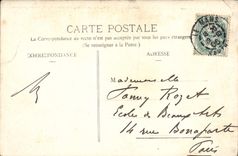 CARTE POSTALE
La Correspondance au recto n'est pas acceptée par tous les pays étrangers
(Se renseigner à la Poste)
CORRESPONDANCE
ADRESSE
Mademoiselle
Fanny Rozet
Ecole de Beaux Arts
14 rue Bonaparte
Paris